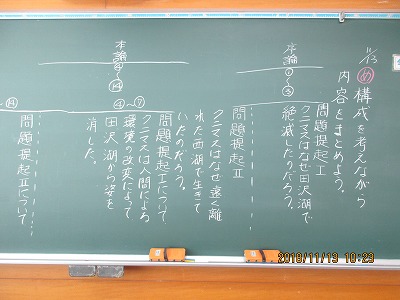 11/13
め 構成を考えながら
内容をまとめよう。
序論
①〜③
問題提起Ⅰ
クニマスはなぜ田沢湖で
絶滅したのだろう。
問題提起Ⅱ
クニマスはなぜ遠く離
れた西湖で生きて
いたのだろう。
本論
④〜⑭
問題提起Ⅰについて
④〜⑦
クニマスは人間による
環境の改変によって
田沢湖から姿を
消した。
〜⑭
問題提起Ⅱについて
2018/11/13 10:29